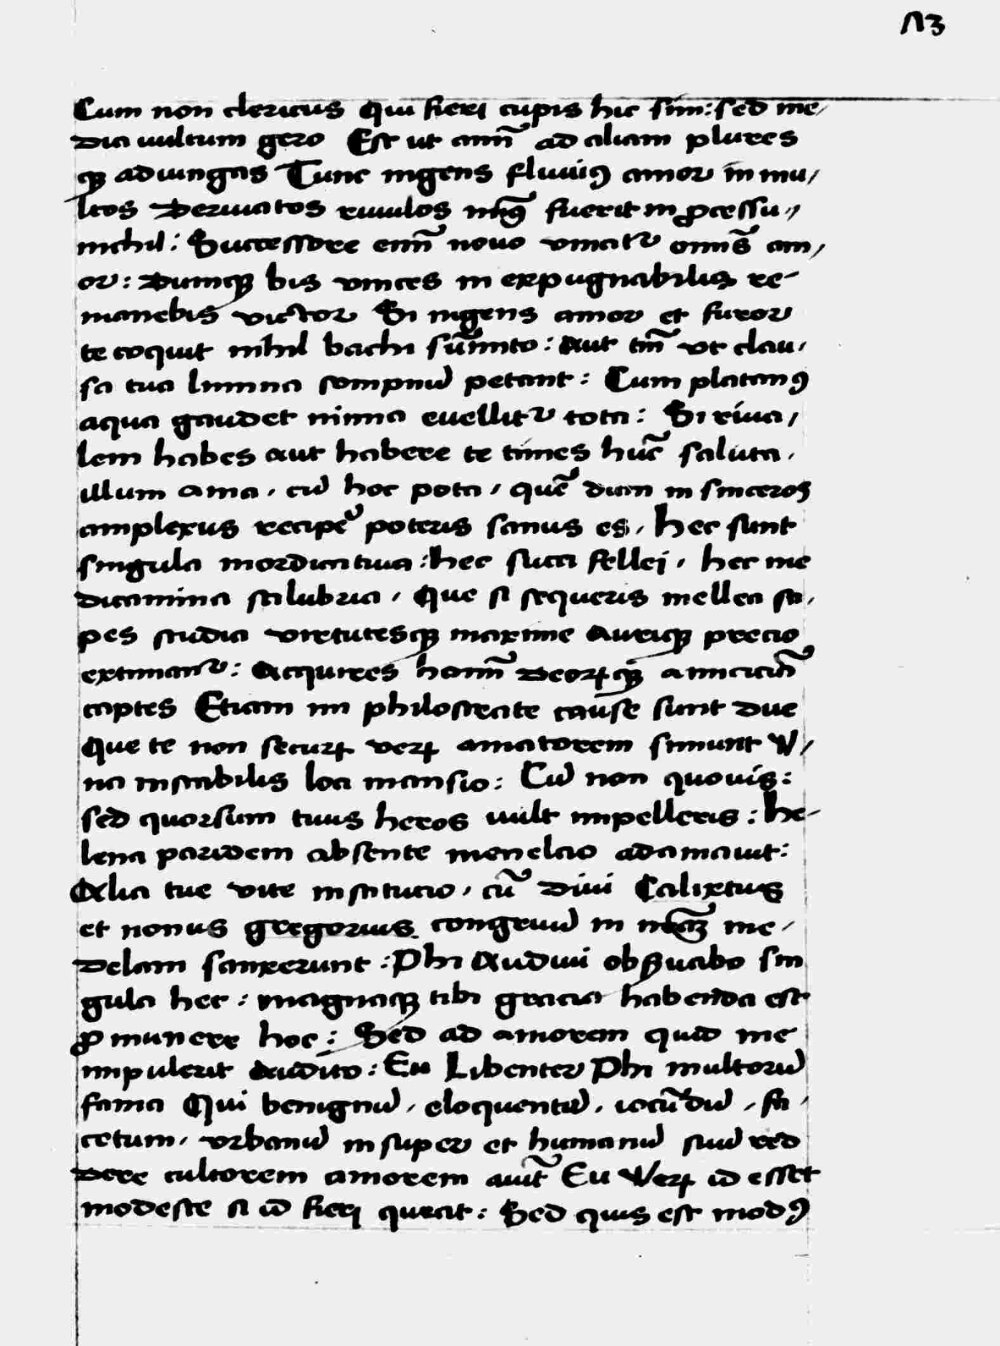 113
Cum non clericus Qui fieri cupis hic sim: sed me/
dia uultum gero Est ut amı̄ ad aliam plures
qꝫ adiungas Tunc ingens fluuiꝰ amor in mu/
ltos deriuatos riuulos fuerit in ꝓcessu,,
nichil: Successore enim̄ nouo om̄is am/
or: dumqꝫ bis uinces in expugnabilis re-
manebis victor Si ingens amor et furor
te coquit nihil bachi su᷑mito: Aut tm̄ vt clau/
sa tua lumina sompnū petant: Cum platanꝰ
aqua gaudet nimia euellitᷣ tota: Si riua/
lem habes aut habere te times hūc saluta,
illum ama, cū hoc pota, quē dum in sinceros
amplexus recipē poteris sanus es, hec sunt
singula mordicatiua: hec succi fellei, hec me
dicamina salubria, Que si sequeris mellea sa,
pes studia virtutesqꝫ maxime Auriqꝫ precio
extimantᷣ: Acquires homı̄ deorꝝqꝫ amiciciā
captes Etiam mi philostrate cause sunt due
Que te non securꝝ verꝝ amatorem sinunt V/
na instabilis loci mansio: Cū non quouis:
sed quorsum tuus heros uult impelleris: he-
lena paridem absente menelao adamauit:
Alia tue vite institucio, cū diui Calixtus
et nonus gregorius congruū in me/
delam sanxerunt: Phi Audiui obꝭuabo sin
gula hec: magnaqꝫ tibi gracia habenda est
ꝓ munere hoc: Sed ad amorem quid me
impulerit Audito: Eu Libenter Phi multorū
fama Qui benignū, eloquentē, iocūdū, fa/
cetum, vrbanū insuper et humanū suū red
dere cultorem amorem aiūt Eu Verꝝ id esset
modeste si id fieri queat: Sed quis est modꝰ